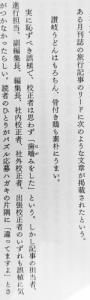 ある月刊誌の旅行記事のリードに次のような文章が掲載されたという。
讃岐うどんはもちろん、骨付き鶏も素朴にうまい。
実に恥ずべき誤植で、校正者は思わず「歯噛みをした」という。しかし記事の担当者、
進行担当、副編集長、編集長、社内校正者、社外校正者、出張校正者のいずれも誤植に気
がつかなかったらしい。読者のひとりがパズル応募ハガキの片隅に「違ってますよ」とさ